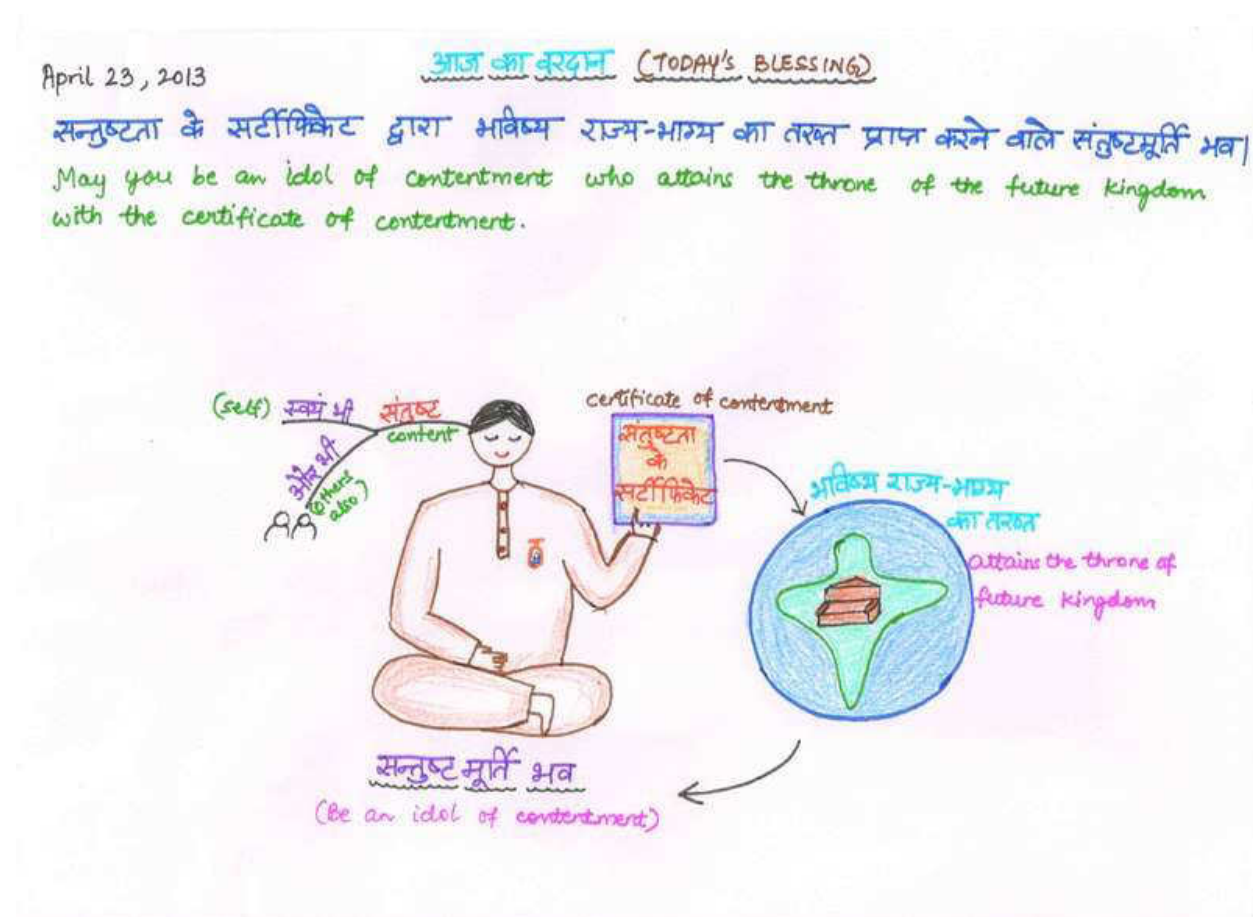 April 23, 2013
आज का वरदान (TODAY'S BLESSING)
सन्तुष्टता के सर्टीफिकेट द्वारा भविष्य राज्य-भाग्य का तख्त प्राप्त करने वाले संतुष्टमूर्ति भव।
May you be an idol of contentment who attains the throne of the future kingdom
with the certificate of contentment.
(self) स्वयं भी संतुष्ट
content
और भी
(others also)
certificate of contentment
संतुष्टता
के
सर्टीफिकेट
भविष्य राज्य-भाग्य
का तख्त
attains the throne of
future kingdom
सन्तुष्ट मूर्ति भव
(Be an idol of contentment)